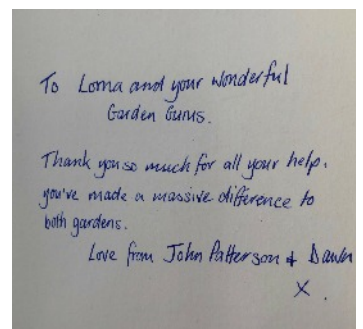 To Lorna and your wonderful
Garden Gurus.
Thank you so much for all your help,
you've made a massive difference to
both gardens.
Love from John Patterson & Dawn
X.